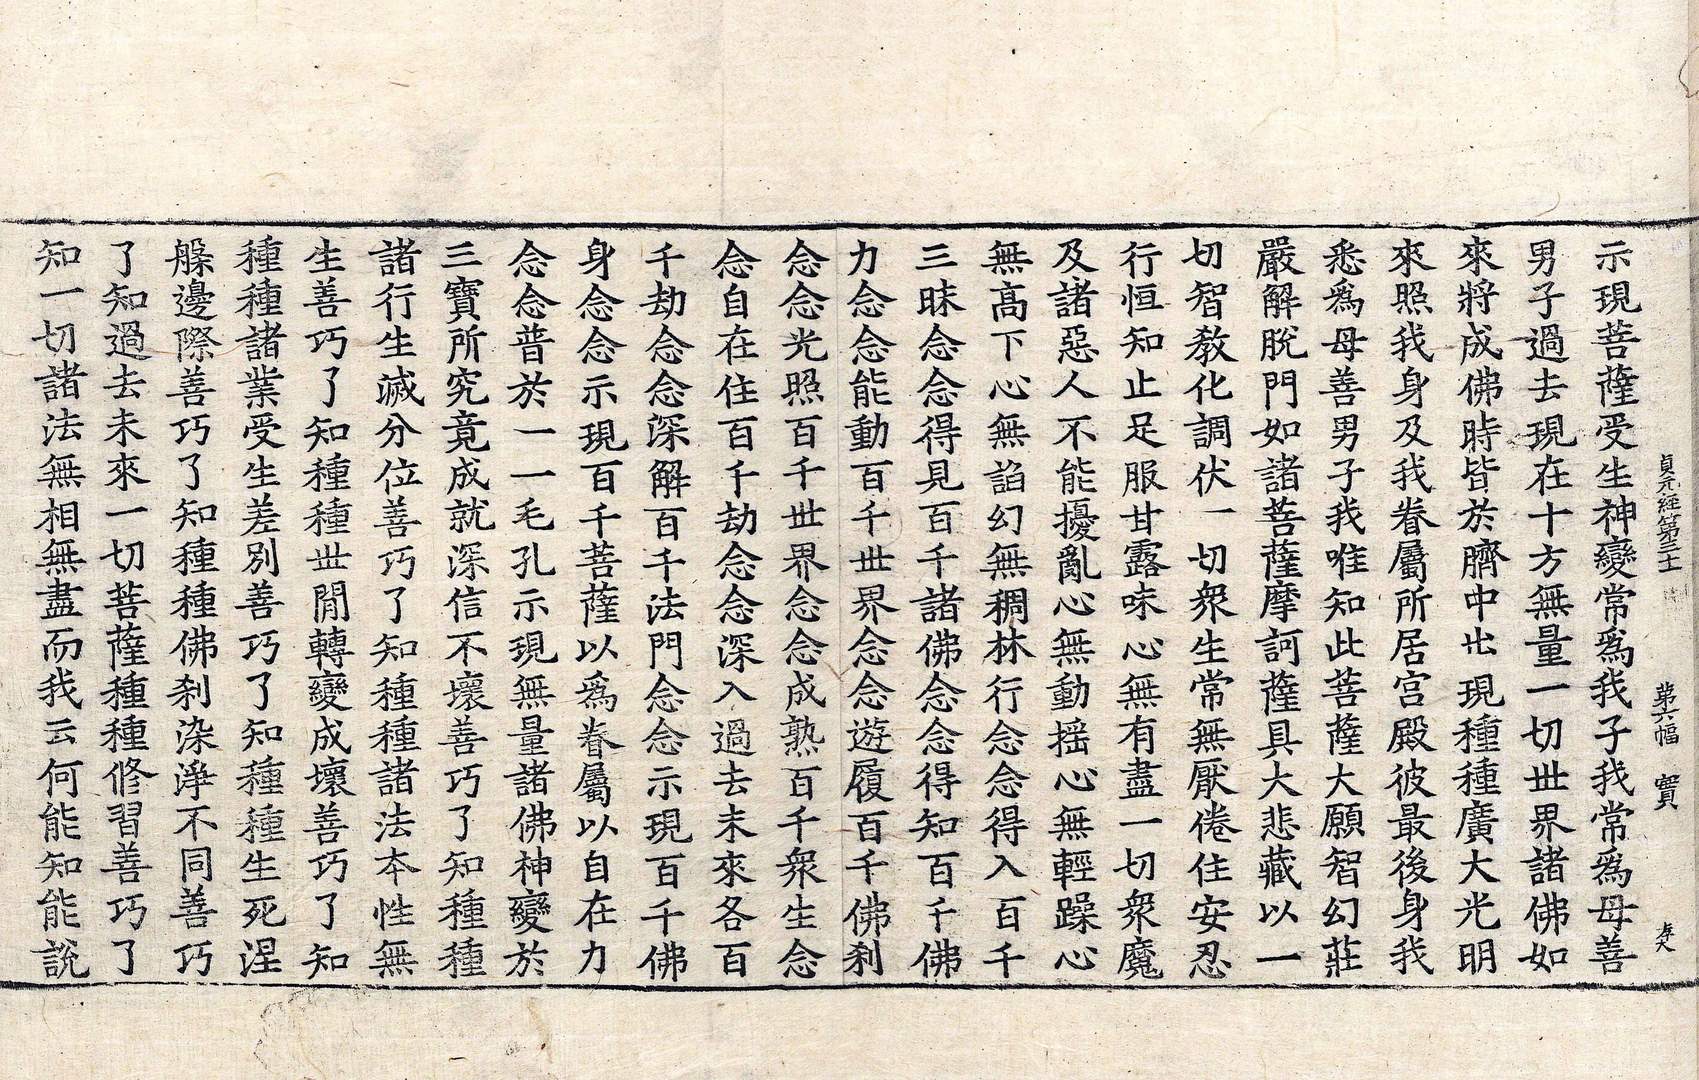 貞元經第三十 第六幅 寶
示現菩薩受生神變常爲我子我常爲母善
男子過去現在十方無量一切世界諸佛如
來將成佛時皆於臍中出現種種廣大光明
來照我身及我眷屬所居宮殿彼最後身我
悉爲母善男子我唯知此菩薩大願智幻莊
嚴解脫門如諸菩薩摩訶薩具大悲藏以一
切智教化調伏一切衆生常無厭倦住安忍
行恒知止足服甘露味心無有盡一切衆魔
及諸惡人不能擾亂心無動搖心無輕躁心
無高下心無諂幻無稠林行念念得入百千
三昧念念得見百千諸佛念念得知百千佛
力念念能動百千世界念念遊履百千佛刹
念念光照百千世界念念成熟百千衆生念
念自在住百千劫念念深入過去未來各百
千劫念念深解百千法門念念示現百千佛
身念念示現百千菩薩以爲眷屬以自在力
念念普於一一毛孔示現無量諸佛神變於
三寶所究竟成就深信不壞善巧了知種種
諸行生滅分位善巧了知種種諸法本性無
生善巧了知種種世閒轉變成壞善巧了知
種種諸業受生差別善巧了知種種生死涅
槃邊際善巧了知種種佛刹染淨不同善巧
了知過去未來一切菩薩種種修習善巧了
知一切諸法無相無盡而我云何能知能說